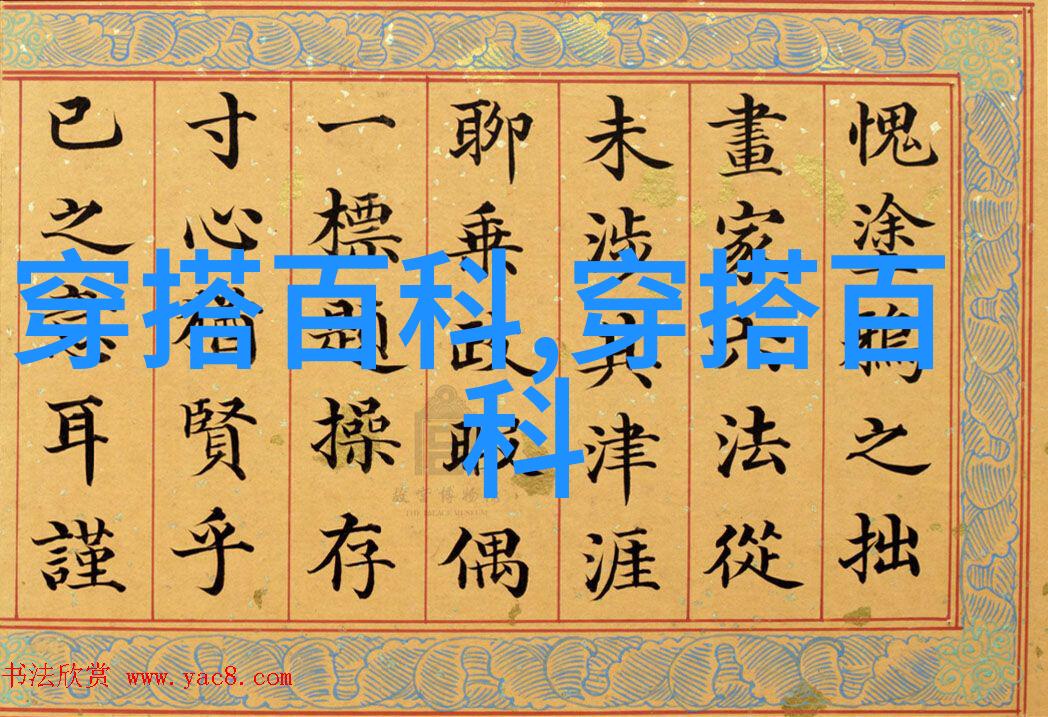 愧塗鴉之拙
畫家六法從
未涉其津涯
聊乘政暇偶
一標題操存
寸心猶賢乎
已之意耳謹
穿搭百科,穿搭百
科
故宫博物院
THE PALACE MUSEUM
书法欣赏 www.yac8.com